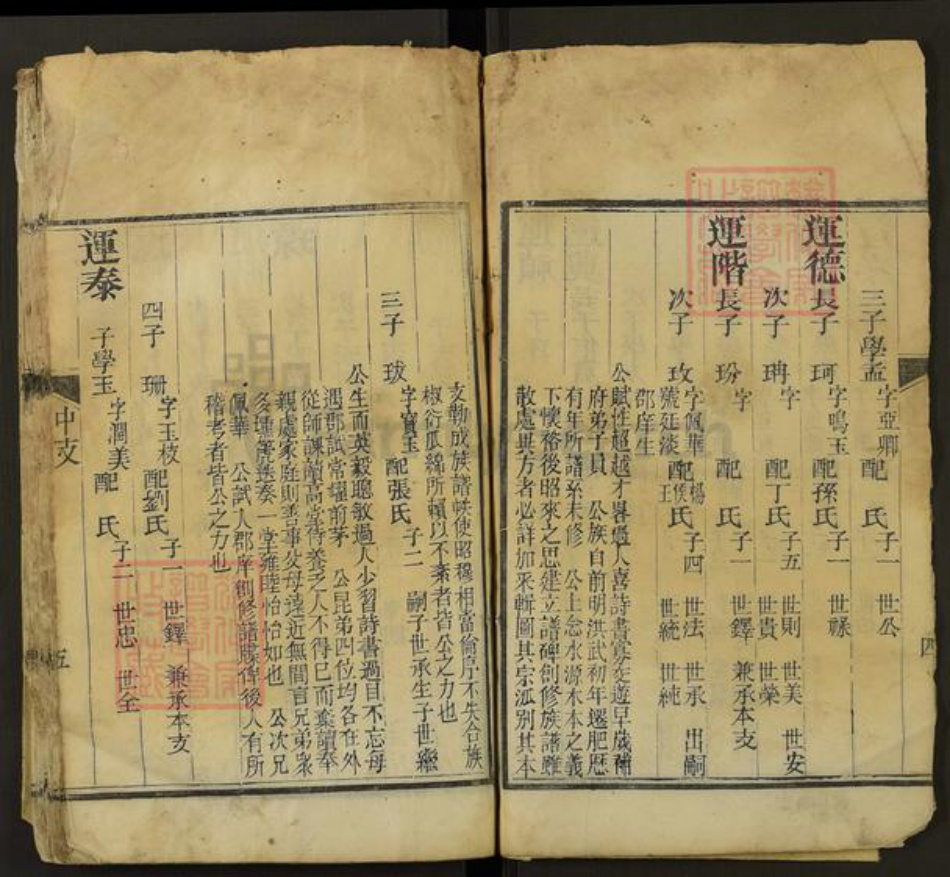 三子學孟 字亞卿 配 氏 子一 世公
運德 長子 珂 字鳴玉 配孫氏 子一 世祿
次子 珃 字 配丁氏 子五 世則 世美 世安 世貴 世榮
運階 長子 玢 字 配 氏 子一 世鐸 兼承本支
次子 玫 字佩華 號廷淡 配楊侯王氏 子四 世法 世承 出嗣 世統 世純
郡庠生
公賦性超越才畧過人喜詩書寡交遊早歲補
府弟子員 公族自前明洪武初年遷肥歷
有年所譜系未修 公上念水源木本之義
下懷裕後昭來之思建立譜碑創修族譜雖
散處異方者必詳加采輯圖其宗派別其本
支勒成族譜帙使昭穆相當倫序不失合族
椒衍瓜綿所賴以不紊者皆公之力也
三子 珬 字寶玉 配張氏 子二 嗣子世承生子世繼
公生而英毅聰敏過人少習詩書過目不忘母
遇郡試常擢前茅 公昆弟四位均各在外
從師課讀高堂侍養乏人不得已而棄讀奉
親處家庭則善事父母遠近無間言兄弟衆
多壎箎迭奏一堂雍睦怡怡如也 公次兄
佩華 公試入郡庠創修譜牒俾後人有所
稽考者皆公之力也
四子 珊 字玉枝 配劉氏 子一 世鐸 兼承本支
運泰 子學玉 字潤美 配 氏 子二 世忠 世全
中支 五
四